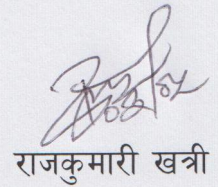 राजकुमारी खत्री